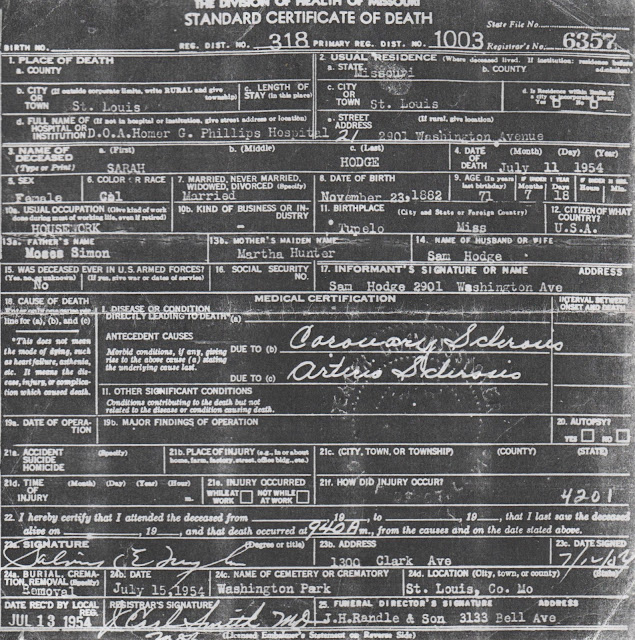 THE DIVISION OF HEALTH OF MISSOURI
STANDARD CERTIFICATE OF DEATH
State File No.
BIRTH NO. REG. DIST. NO. 318 PRIMARY REG. DIST. NO. 1003 Registrar's No. 6357
1. PLACE OF DEATH
a. COUNTY
2. USUAL RESIDENCE (Where deceased lived. If institution: residence before admission)
a. STATE Missouri b. COUNTY
b. CITY (If outside corporate limits, write RURAL and give township) OR TOWN St. Louis
c. LENGTH OF STAY (in this place)
c. CITY OR TOWN St. Louis
d. Is Residence within limits of a city or incorporated town? Yes No
d. FULL NAME OF (If not in hospital or institution, give street address or location) HOSPITAL OR INSTITUTION D.O.A. Homer G. Phillips Hospital
e. STREET ADDRESS (If rural, give location) 21 2901 Washington Avenue
3. NAME OF DECEASED (Type or Print) a. (First) SARAH b. (Middle) c. (Last) HODGE
4. DATE OF DEATH (Month) (Day) (Year) July 11 1954
5. SEX Female
6. COLOR OR RACE Col
7. MARRIED, NEVER MARRIED, WIDOWED, DIVORCED (Specify) Married
8. DATE OF BIRTH November 23, 1882
9. AGE (In years last birthday) 71 IF UNDER 1 YEAR Months 7 Days 18 IF UNDER 24 HRS. Hours Min.
10a. USUAL OCCUPATION (Give kind of work done during most of working life, even if retired) HOUSEWORK
10b. KIND OF BUSINESS OR INDUSTRY
11. BIRTHPLACE (City and State or Foreign Country) Tupelo Miss
12. CITIZEN OF WHAT COUNTRY? U.S.A.
13a. FATHER'S NAME Moses Simon
13b. MOTHER'S MAIDEN NAME Martha Hunter
14. NAME OF HUSBAND OR WIFE Sam Hodge
15. WAS DECEASED EVER IN U.S. ARMED FORCES? (Yes, no, or unknown) (If yes, give war or dates of service) No
16. SOCIAL SECURITY NO.
17. INFORMANT'S SIGNATURE OR NAME ADDRESS
Sam Hodge 2901 Washington Ave
18. CAUSE OF DEATH
Enter only one cause per line for (a), (b), and (c)
*This does not mean the mode of dying, such as heart failure, asthenia, etc. It means the disease, injury, or complication which caused death.
MEDICAL CERTIFICATION
INTERVAL BETWEEN ONSET AND DEATH
I. DISEASE OR CONDITION DIRECTLY LEADING TO DEATH* (a)
ANTECEDENT CAUSES
Morbid conditions, if any, giving rise to the above cause (a) stating the underlying cause last.
DUE TO (b) Coronary Sclerosis
DUE TO (c) Arterio Sclerosis
11. OTHER SIGNIFICANT CONDITIONS
Conditions contributing to the death but not related to the disease or condition causing death.
19a. DATE OF OPERATION
19b. MAJOR FINDINGS OF OPERATION
20. AUTOPSY? YES NO
21a. ACCIDENT SUICIDE HOMICIDE (Specify)
21b. PLACE OF INJURY (e.g., in or about home, farm, factory, street, office bldg., etc.)
21c. (CITY, TOWN, OR TOWNSHIP) (COUNTY) (STATE)
21d. TIME OF INJURY (Month) (Day) (Year) (Hour) m.
21e. INJURY OCCURRED WHILE AT WORK NOT WHILE AT WORK
21f. HOW DID INJURY OCCUR?
4201
22. I hereby certify that I attended the deceased from , 19 , to , 19 , that I last saw the deceased
alive on , 19 , and that death occurred at m., from the causes and on the date stated above.
23a. SIGNATURE (Degree or title)
23b. ADDRESS 1300 Clark Ave
23c. DATE SIGNED
24a. BURIAL, CREMATION, REMOVAL (Specify) Removal
24b. DATE July 15, 1954
24c. NAME OF CEMETERY OR CREMATORY Washington Park
24d. LOCATION (City, town, or county) (State) St. Louis, Co. Mo
DATE REC'D BY LOCAL REG. JUL 13 1954
REGISTRAR'S SIGNATURE J. Earl Smith MD
25. FUNERAL DIRECTOR'S SIGNATURE ADDRESS
J.H. Randle & Son 3133 Bell Ave
(Licensed Embalmer's Statement on Reverse Side)